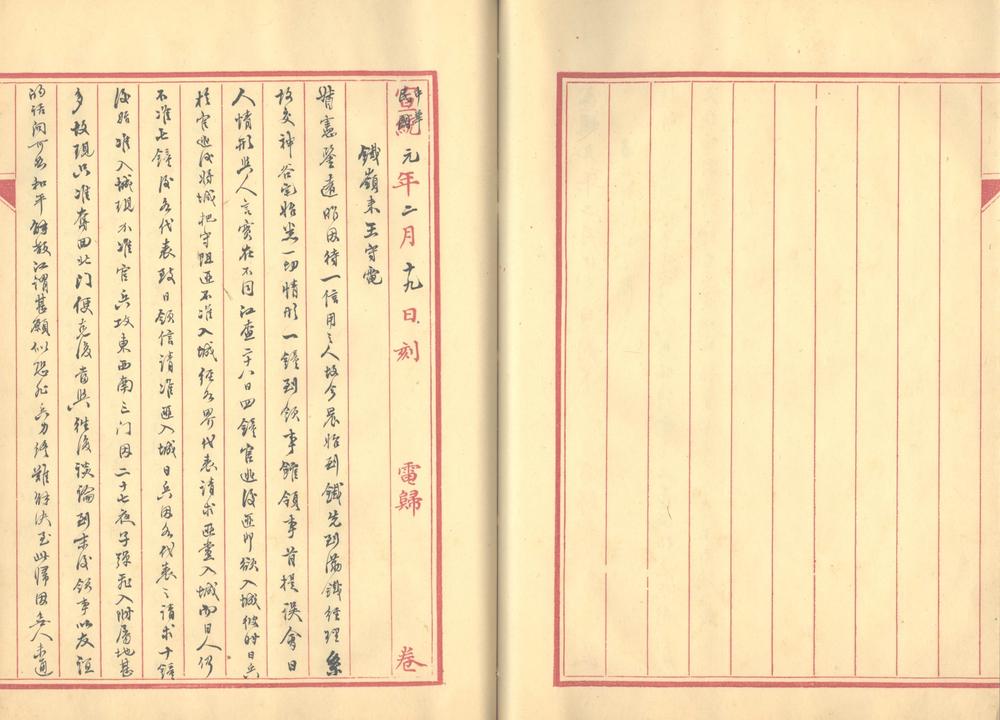 宣統元年二月十九日刻　電歸　卷
鐵嶺來王守電
督憲鑒遠昭因待一信用之人故今晨始到鐵先到滿鐵經理
故交神谷宅始悉一切情形一鐘到領事館領事首提誤會日
人情形與人言實在不同江查二十八日四鐘官逃後匪即欲入城彼時日兵
於官逃後將城把守阻匪不准入城經各界代表請求匪黨入城而日人仍
不准七鐘後各代表致日領信請准匪入城日兵因各代表之請求十鐘
後始准入城現不准官兵攻東西南三门因二十七夜子彈飛入附屬地甚
多故現只准奪回北门便克復當與往復談論到末後領事以友誼
的話问可否和平解散江謂甚願似恐非兵力終難解決至此歸因無人來通